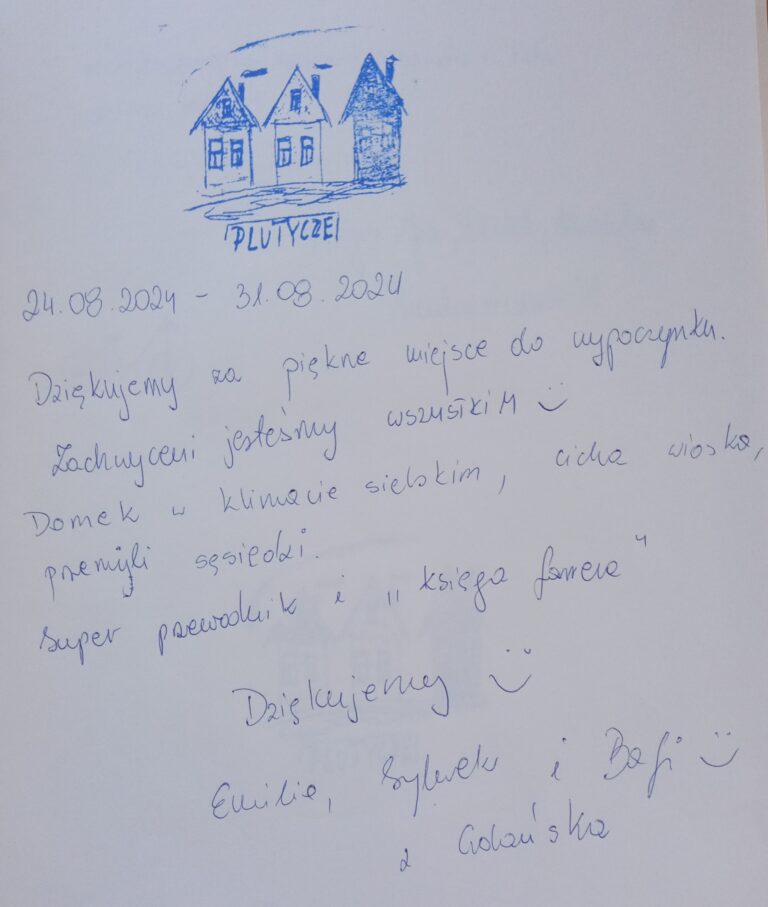 PLUTYCZE
24.08.2024 - 31.08.2024
Dziękujemy za piękne miejsce do wypoczynku.
Zachwyceni jesteśmy wszystkim
Domek w klimacie sielskim, cicha wioska,
przemili sąsiedzi.
Super przewodnik i "księga farera"
Dziękujemy
Emilia, Sylwek i Bafi
z Gdańska